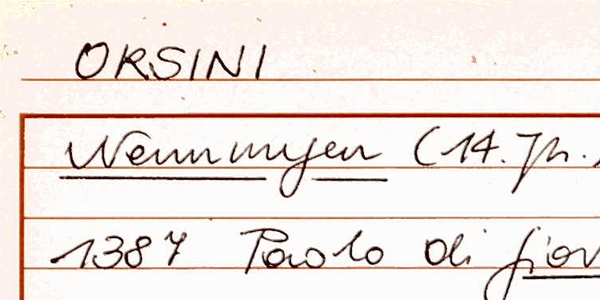 ORSINI
Nennungen (14. Jh.)
1387 Paolo di Giov